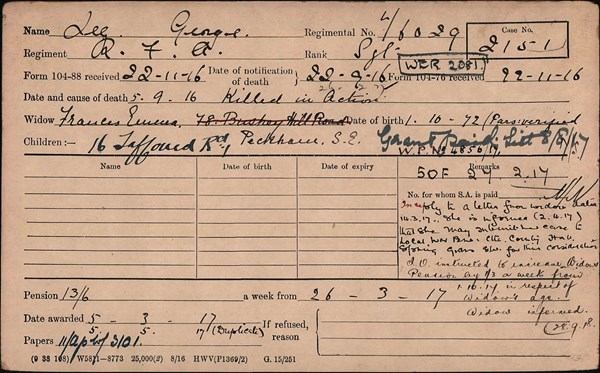 Name Lee George Regimental No. L/6029 Case No.
Regiment R. F. A. Rank Sgt 2151
WER 2081
Form 104-88 received 22-11-16 Date of notification of death 22-9-16 Form 104-76 received 22-11-16
Date and cause of death 5.9.16 Killed in Action
Widow Frances Emma, 78 Bushey Hill Road Date of birth 1.10-72 (Pars: verified
Children:— 16 Rd, Peckham, S.E. Grant Paid List 8/8/17
W.P. No 4856/17
Name Date of birth Date of expiry Remarks
SOF 24 2.17
No. for whom S.A. is paid
In reply to a letter from widow dated
14.3.17. She is informed (2.4.17)
that she may submit her case to
Local War Cte. County Hall
Spring Gdns S.W. for this consideration
I.O. instructed to increase Widows
Pension by 1/3 a week from
1.10.17 in respect of
Widow's age.
Widow informed.
(28.9.18.
Pension 13/6 a week from 26-3-17
Date awarded 5-3-17
5. 5. 17 (Duplicate)
If refused, reason
Papers 3101.
(9 38 108) W5811—8773 25,000(2) 8/16 HWV(P1369/2) G. 15/251